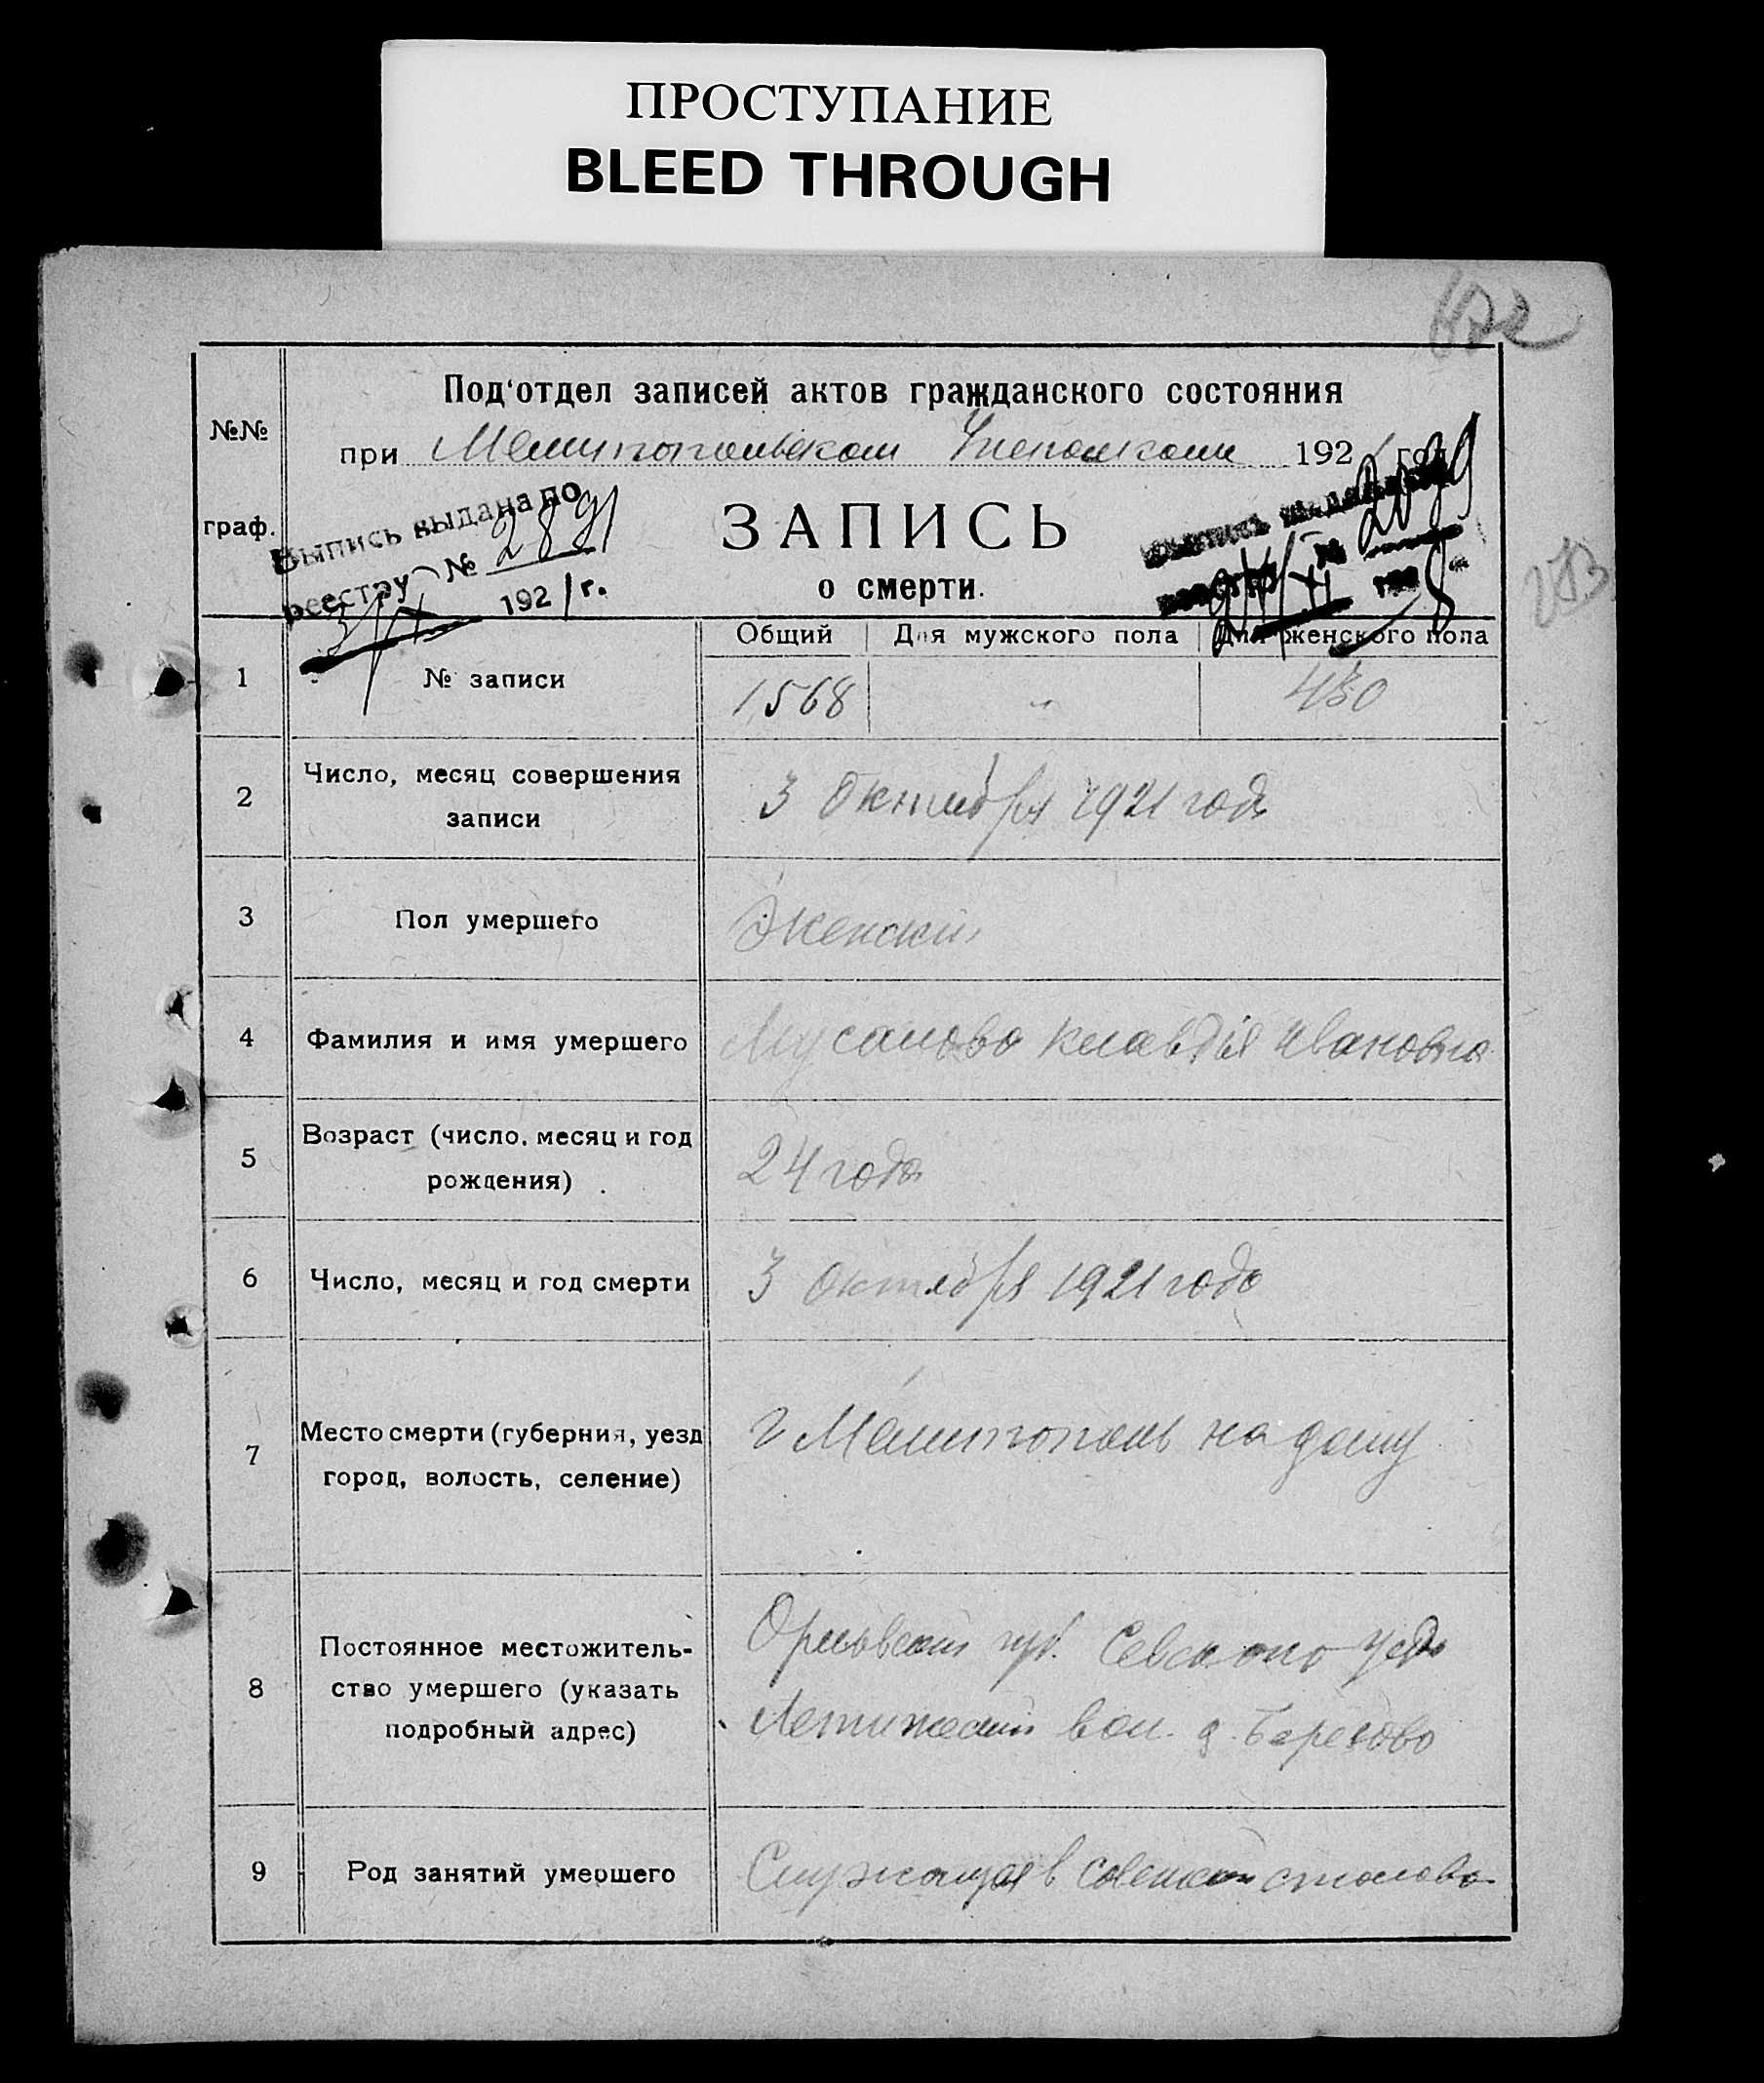 ПРОСТУПАНИЕ
BLEED THROUGH
Под'отдел записей актов гражданского состояния
№№
граф.
при Мелитопольском 1921 год
Выпись выдана по
реестру № 2891
1921 г.
ЗАПИСЬ
о смерти.
Общий Для мужского пола Для женского пола
1 № записи 1568 " 430
2 Число, месяц совершения
записи
3 Октября 1921 года
3 Пол умершего Женский
4 Фамилия и имя умершего Клавдія Ивановна
5 Возраст (число, месяц и год
рождения)
24 года
6 Число, месяц и год смерти 3 Октября 1921 года
7 Место смерти (губерния, уезд
город, волость, селение)
г Мелитополь на дому
8 Постоянное местожитель-
ство умершего (указать
подробный адрес)
губ. Севского
вол. д. Березово
9 Род занятий умершего Служащая в